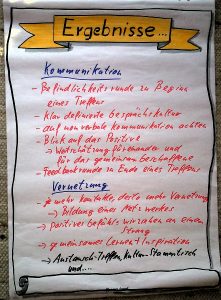 Ergebnisse...
Kommunikation
- Befindlichkeitsrunde zu Beginn
eines Treffens
- Klar definierte Gesprächskultur
- auf non verbale Kommunikation achten
- Blick auf das Positive
→ Wertschätzung füreinander und
für das gemeinsam Geschaffene
- Feedbackrunde zu Ende eines Treffens
Vernetzung
- je mehr Kontakte, desto mehr Vernetzung
→ Bildung eines Netzwerkes
→ positives Gefühl: wir ziehen an einem
Strang
→ gemeinsames Lernen + Inspiration
→ Austausch-Treffen, Kultur-Stammtisch
und....